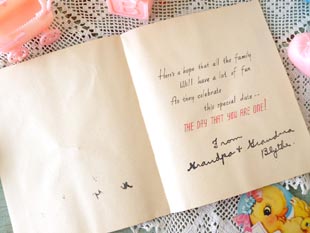 Here's a hope that all the family
Will have a lot of fun
As they celebrate
this special date..
THE DAY THAT YOU ARE ONE!
From
Grandpa & Grandma
Blythe.